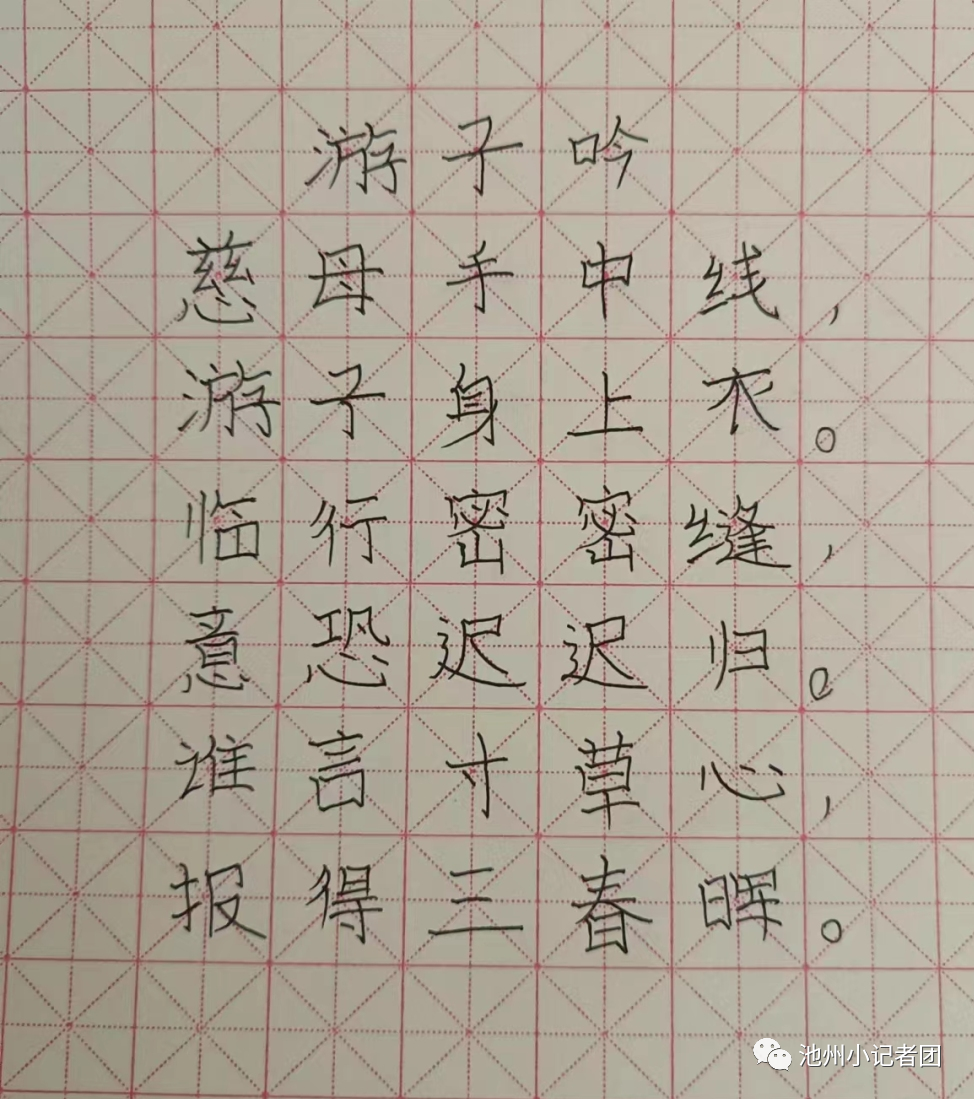 游子吟
慈母手中线，
游子身上衣。
临行密密缝，
意恐迟迟归。
谁言寸草心，
报得三春晖。
池州小记者团